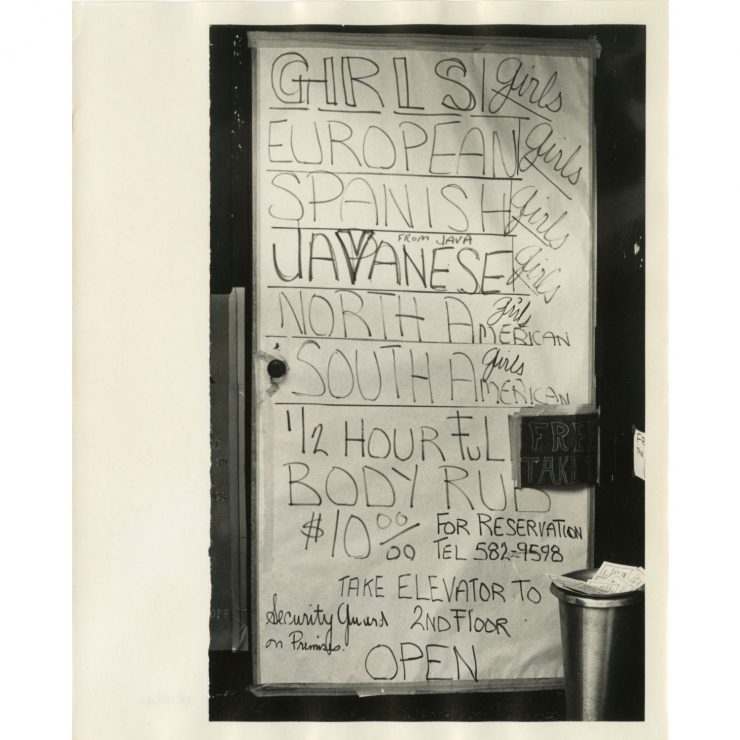 GIRLS girls
EUROPEAN girls
SPANISH girls
FROM JAVA
JAVANESE girls
NORTH AMERICAN girls
SOUTH AMERICAN girls
1/2 HOUR FUL
BODY RUB
FRE
TAKE
$10 00/00 FOR RESERVATION
TEL 582-9598
TAKE ELEVATOR TO
2ND FLOOR
Security Guard
on Premises.
OPEN